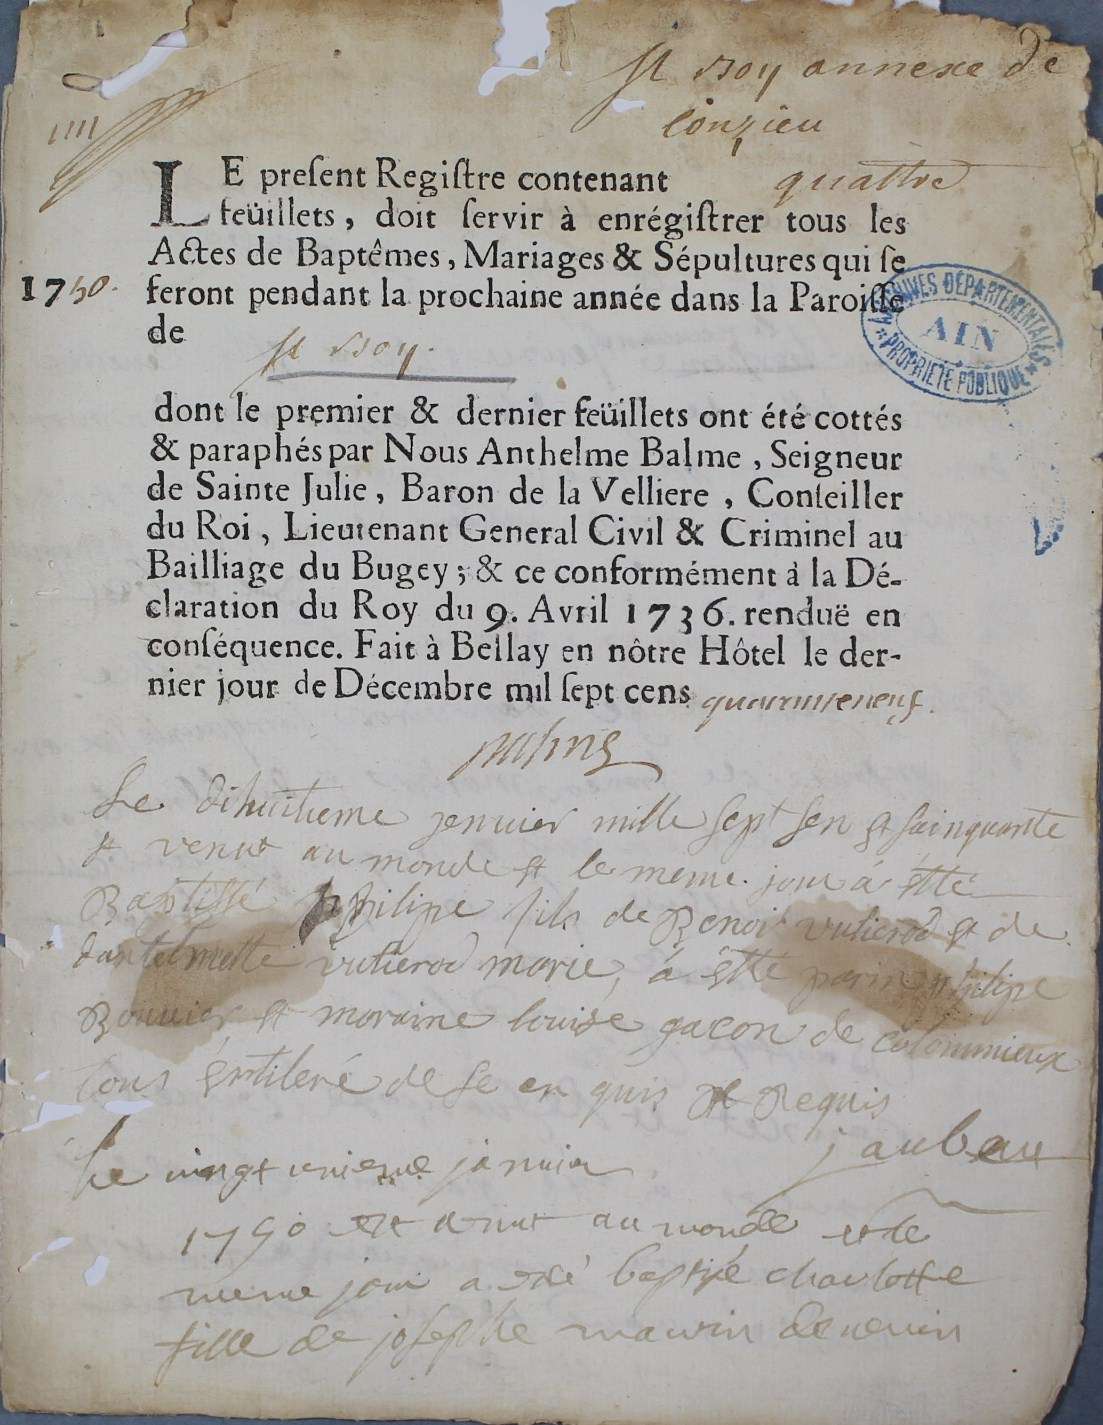 st Boy annexe de
Conzieu
IIII
LE preſent Regiſtre contenant quattre
feüillets, doit ſervir à enrégiſtrer tous les
Actes de Baptêmes, Mariages & Sépultures qui ſe
1750. feront pendant la prochaine année dans la Paroiſſe
de st Boy.
ARCHIVES DÉPARTEMENTALES
AIN
PROPRIÉTÉ PUBLIQUE
dont le premier & dernier feüillets ont été cottés
& paraphés par Nous Anthelme Balme, Seigneur
de Sainte Julie, Baron de la Velliere, Conſeiller
du Roi, Lieutenant General Civil & Criminel au
Bailliage du Bugey; & ce conformément à la Dé-
claration du Roy du 9. Avril 1736. renduë en
conſéquence. Fait à Bellay en nôtre Hôtel le der-
nier jour de Décembre mil ſept cens quaranteneuf.
Balme
Le dihuitieme jenvier mille sept sen et sainquante
et venut au monde et le meme jour à étté
Baptissé philipe fils de Benoit vutierod et de
vutierod marie, à étté parin philipe
Bouvier et moraine louise gacon de colommieux
tous de se en quis et Requis
jaubeau
Le vingt unieme janvier
1750 est venut au monde et le
meme jour a etté baptisé charlotte
fille de josephe maurin